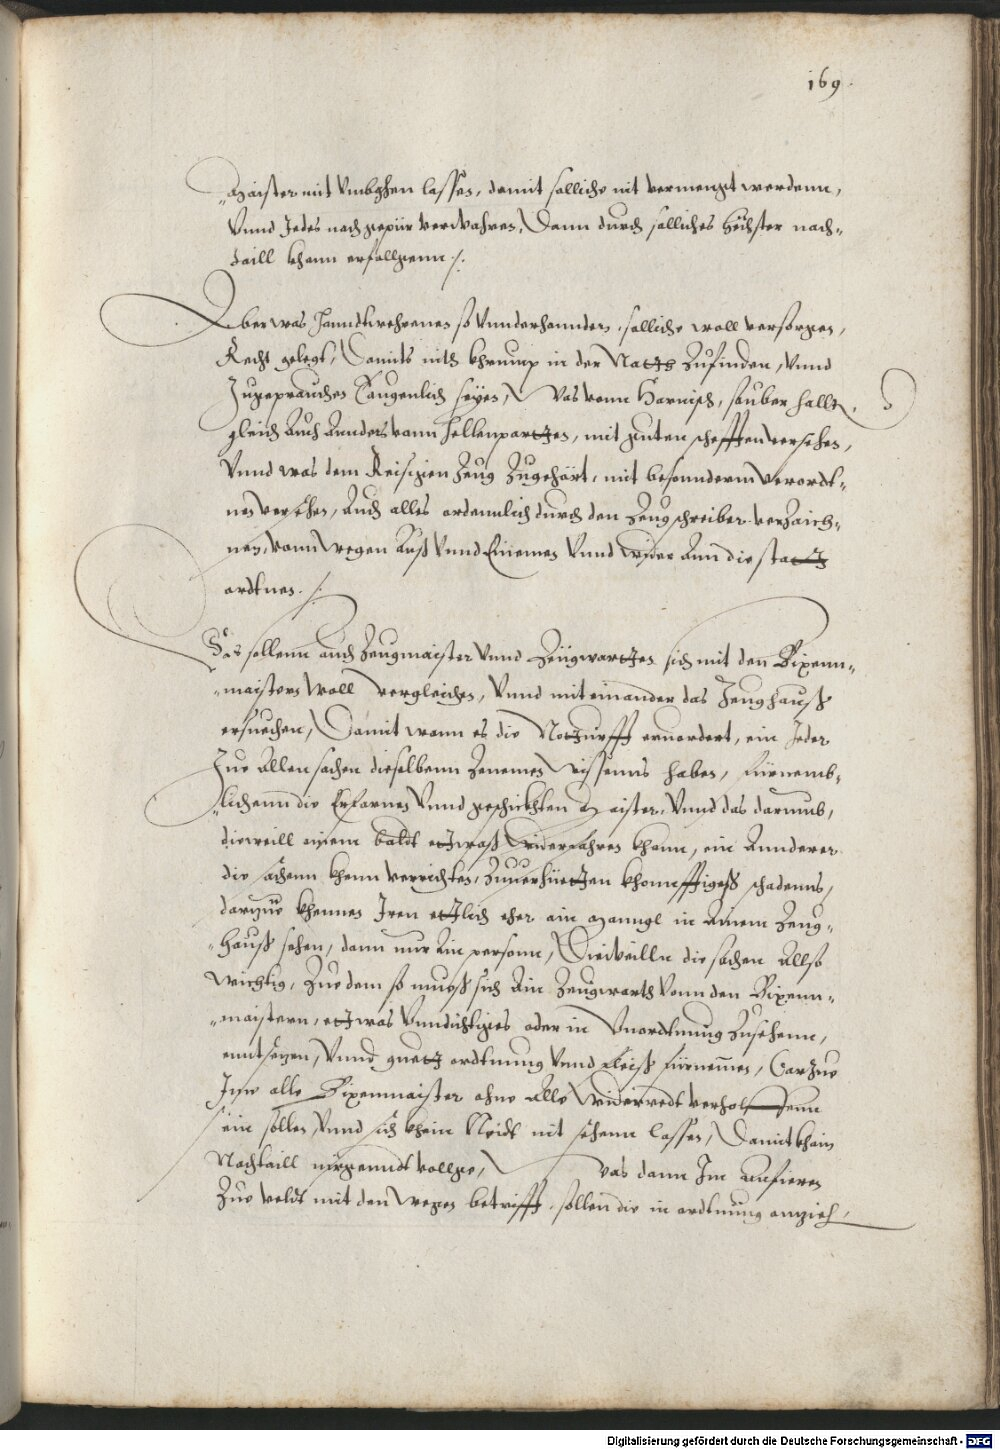 169.
maister nit Vmbgehen lassen, damit solliche nit vermengt werdenn,
Vnnd Jedes nach gepür verwahren, Dann durch solliches höchster nach„
taill khann erfollgenn /.
Aber was Hanndtwehrenen so Vnnderhannden, solliche woll versorgen,
Recht gelegt, Damits nith khrump in der Nacht Zufinden, Vnnd
Zugeprauchen Taugenlich seyen, Was vonn Harnisch, sauber hallt,
gleich Auch Annders vonn Hellenpartten, mit guten schefften versehen,
Vnnd was dem Reisigen Zeug Zugehört, mit besonnderm verordt„
nen versehen, Auch alles ordennlich durch den Zeugschreiber verzaich„
nen, vonn wegen Auß Vnnd Einemen Vnnd wider Ann die statt
ordtnen. /.
Es sollenn auch Zeugmaister Vnnd Zeügwartten sich mit den Bixenn„
„maistern Woll vergleichen, Vnnd miteinander das Zeughauß
ersuechen, Damit wann es die Notturfft ervordert, ein Jeder
Zue Allen sachen dieselbenn Zenemen wissenns haben, fürnemb„
„lichenn die Erfarnen Vnnd geschickhten Maister, Vnnd das darumb,
dieweill ainem baldt ettwaß widerfahren khann, ein Annderer
die sachenn khenn verrichten, Zuuerhüetten khonnfftigeß schadenns,
dartzue khennen Jren ettlich eher ain Manngl in Ainem Zeug„
„hauß sehen, dann nur Ain personn, Dieweilln die sachen Allso
wichtig, Zue dem so mueß sich Ain Zeugwarth Vonn den Bixenn„
„maistern, ettwas Vnndichtiges oder in Vnordtnung Zusehenn,
enntsetzen, Vnnd guett ordtnung Vnnd Fleiß fürnemen, Darzue
Jme alle Bixenmaister ohne Alle Widerredt verholffenn
sein sollen, Vnnd sich khein Neidt nit sehenn lassen, Damit khain
Nachtaill nirgenndt vollge, Was dann Jm Aufieren
Zue veldt mit den Wegen betrifft, sollen die in ordtnung anzieh,
Digitalisierung gefördert durch die Deutsche Forschungsgemeinschaft - DFG